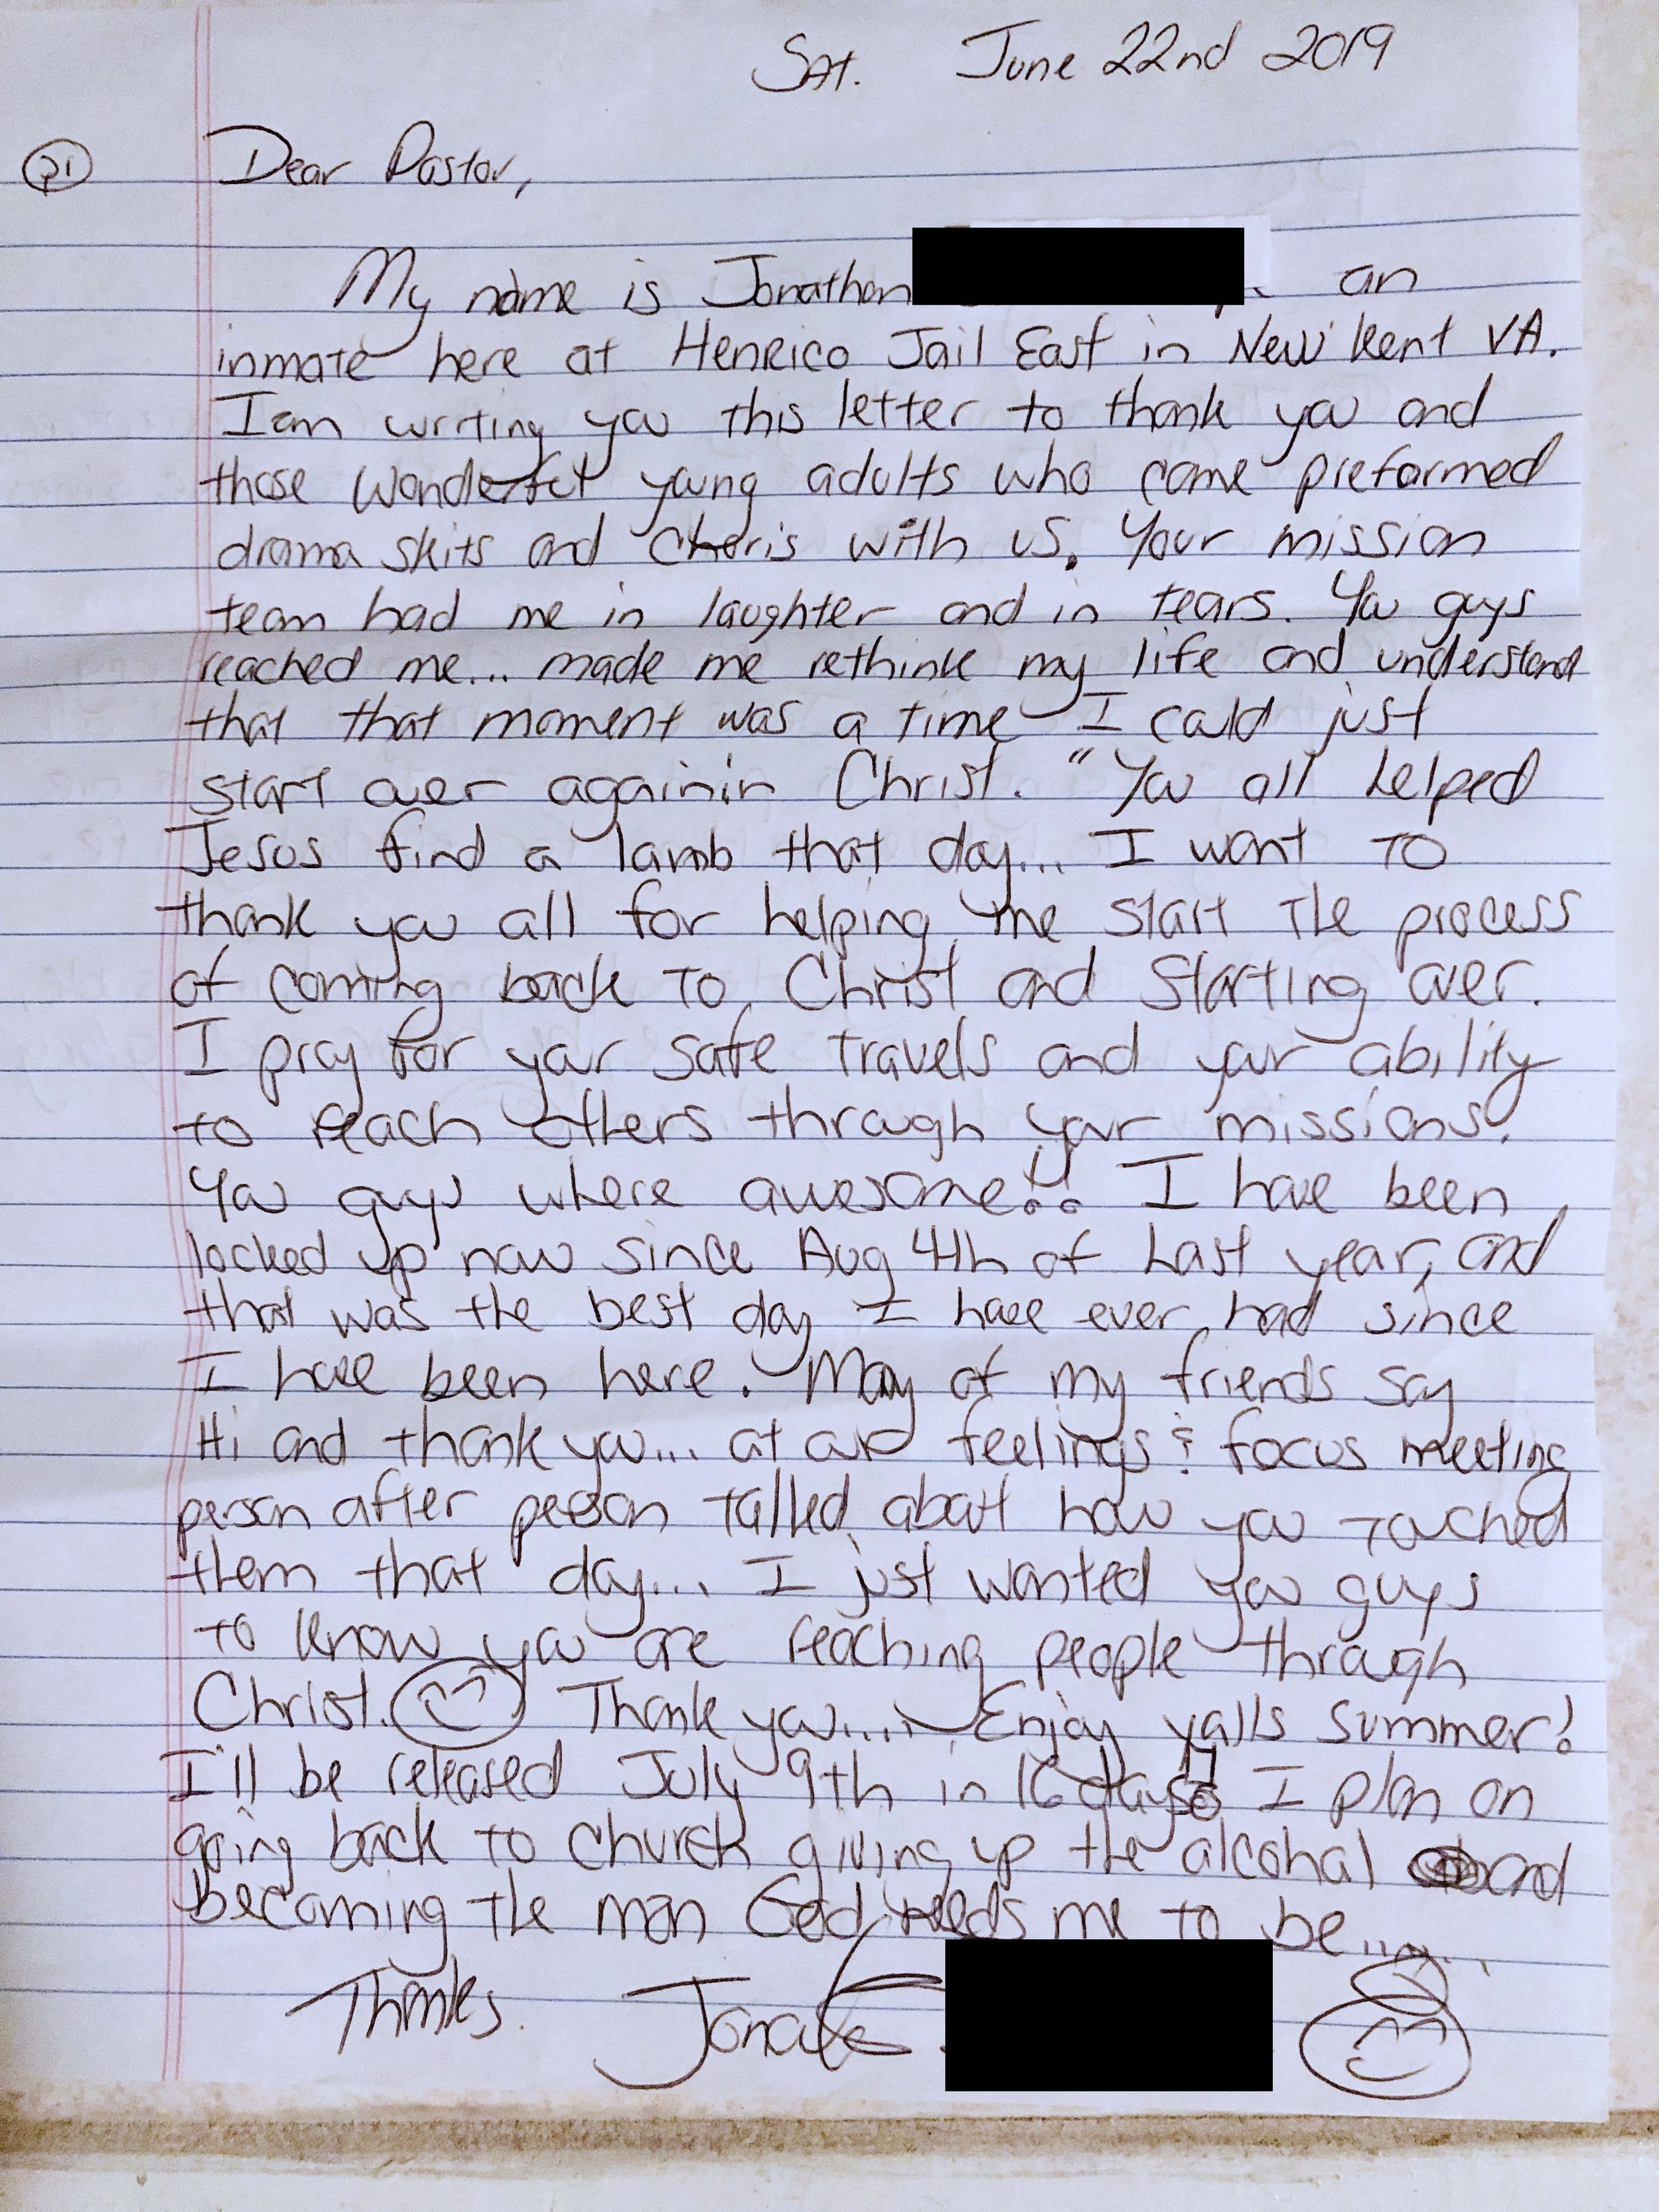 Sat. June 22nd 2019
P1 Dear Pastor,
My name is Jonathan an
inmate here at Henrico Jail East in New Kent VA.
I am writing you this letter to thank you and
those wonderful young adults who came preformed
drama skits and Choris with us. Your mission
team had me in laughter and in tears. You guys
reached me... made me rethink my life and understand
that that moment was a time I could just
start over againin Christ. "You all helped
Jesus find a lamb that day... I want to
thank you all for helping me start the process
of coming back to Christ and starting over.
I pray for your safe travels and your ability
to reach others through your missions.
You guys where awesome!! I have been
locked up now since Aug 4th of last year, and
that was the best day I have ever had since
I have been here. Many of my friends say
Hi and thank you... at our feelings & focus meeting
person after person talked about how you touched
them that day... I just wanted you guys
to know you are reaching people through
Christ. Thank you..... Enjoy yalls summer!
I'll be released July 9th in 16 days I plan on
going back to church giving up the alcohal and
becoming the man God needs me to be......
Thanks.